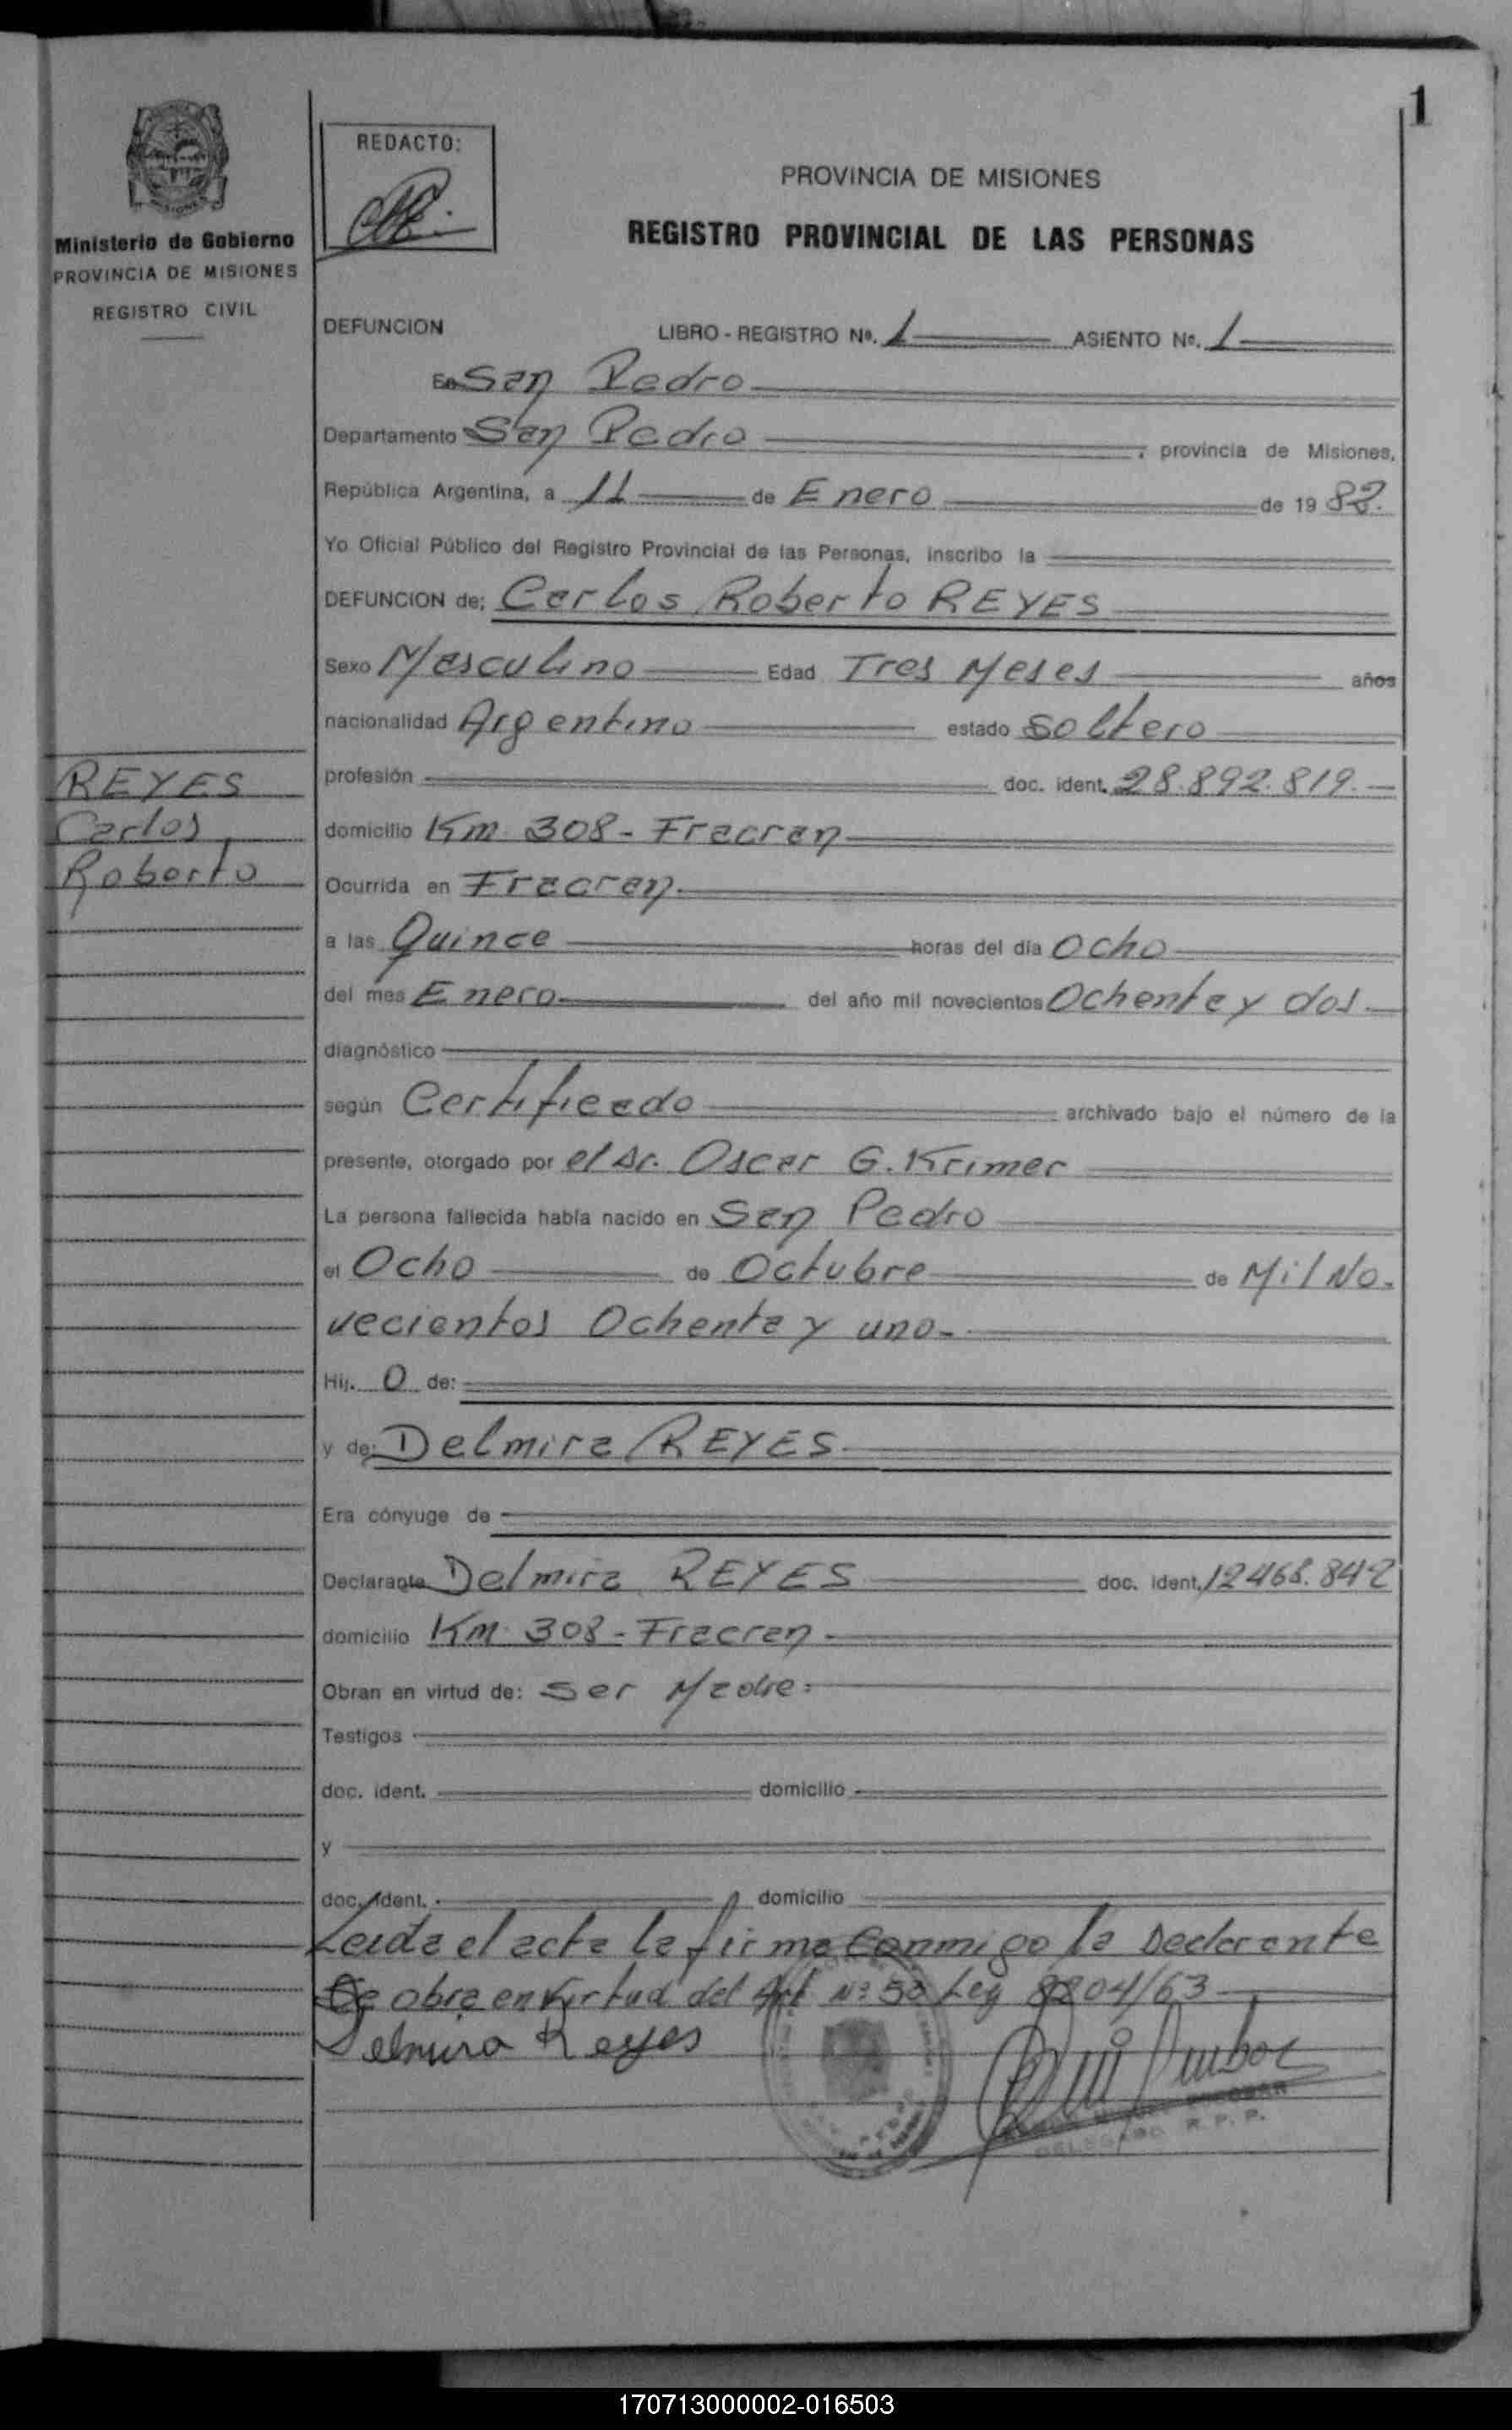 1
MISIONES
Ministerio de Gobierno
PROVINCIA DE MISIONES
REGISTRO CIVIL
REDACTO:
PROVINCIA DE MISIONES
REGISTRO PROVINCIAL DE LAS PERSONAS
DEFUNCION LIBRO - REGISTRO Nº. 1 ASIENTO Nº. 1
En San Pedro
Departamento San Pedro , provincia de Misiones,
República Argentina, a 11 de Enero de 19 82.
Yo Oficial Público del Registro Provincial de las Personas, inscribo la
DEFUNCION de: Carlos Roberto REYES
Sexo Masculino Edad Tres Meses años
nacionalidad Argentino estado soltero
REYES
Carlos
Roberto
profesión doc. ident. 28.892.819.
domicilio Km. 308 - Fracran
Ocurrida en Fracran.
a las Quince horas del día Ocho
del mes Enero. del año mil novecientos Ochenta y dos.
diagnóstico
según Certificado archivado bajo el número de la
presente, otorgado por el Dr. Oscar G. Krimer
La persona fallecida había nacido en San Pedro
el Ocho de Octubre de Mil No-
vecientos Ochenta y uno.
Hij. O de:
y de: Delmira REYES.
Era cónyuge de
Declarante Delmira REYES doc. ident. 12468.842
domicilio Km. 308 - Fracran.
Obran en virtud de: ser Madre.
Testigos
doc. ident. domicilio
y
doc. ident. domicilio
Leida el acta la firma Conmigo la Declarante
Se obra en virtud del Art Nº 50 Ley 8204/63
Delmira Reyes
DELEGADO R. P. P.
170713000002-016503